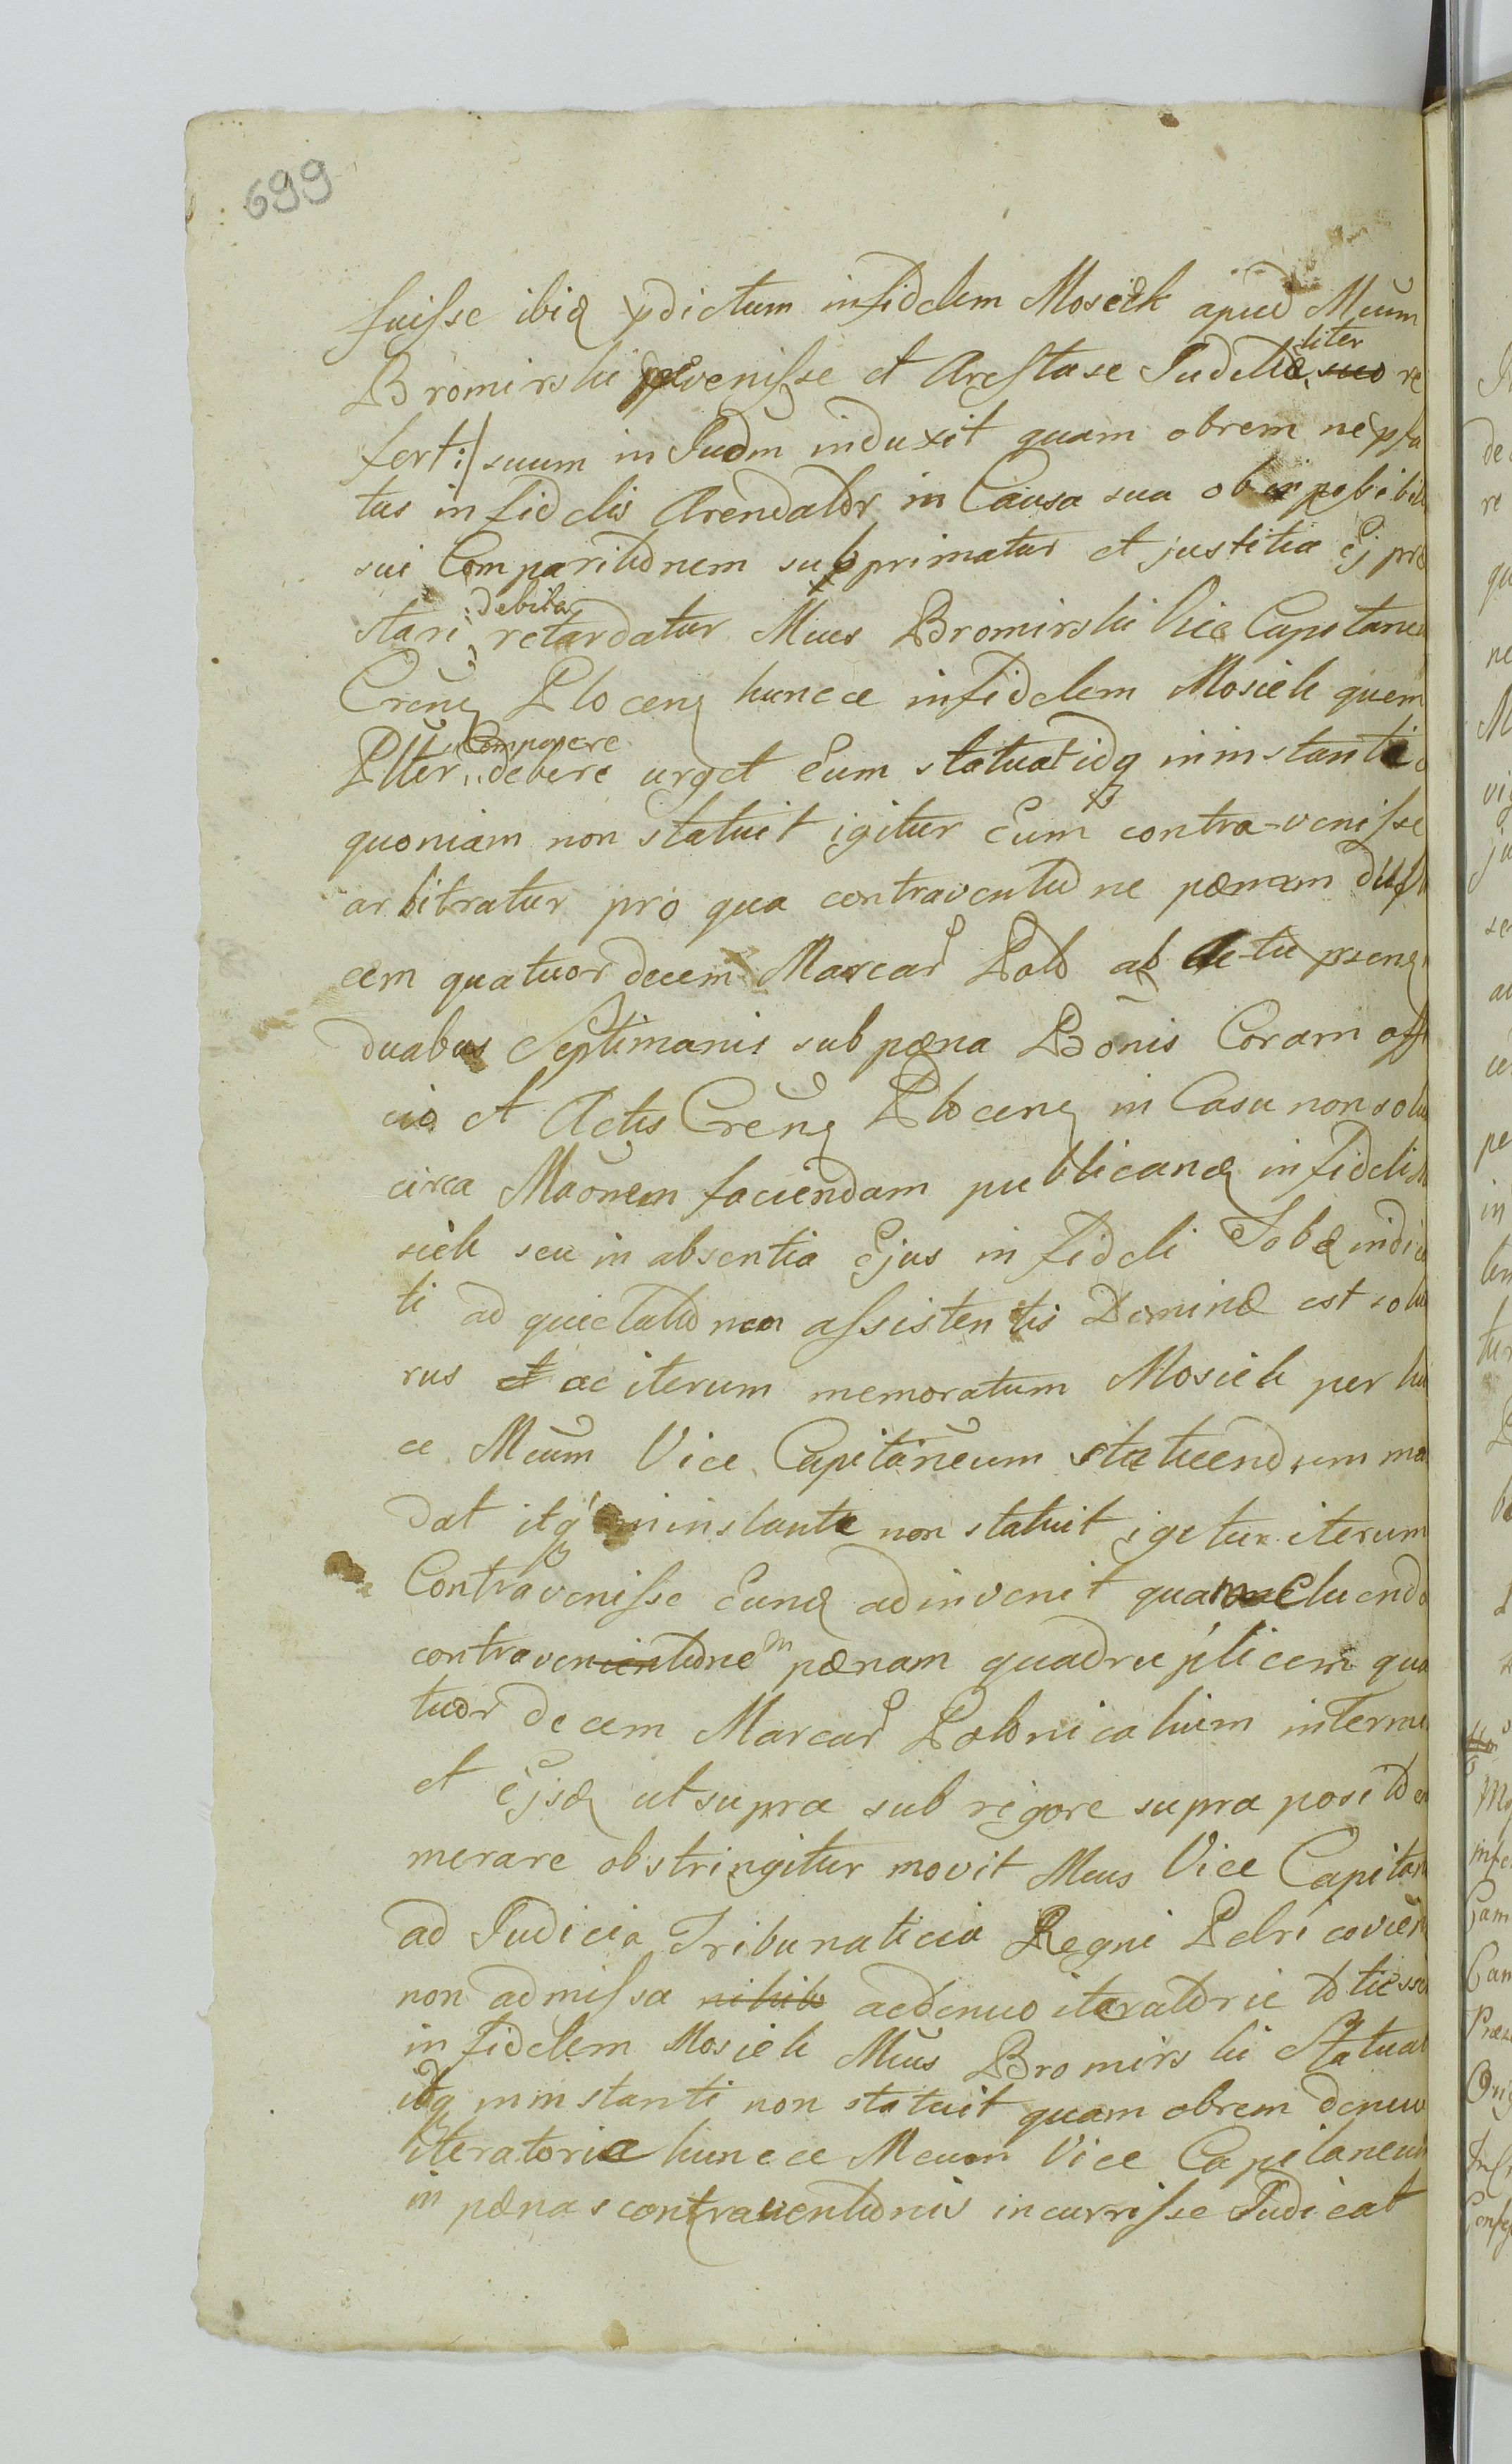 699
fuisse ibiq pdictum infidelem Mosiek apud Mcum
Bromirski pervenisse et Arestase Judcliter re
fert:/ suum in Judm induxit quam obrem ne psa
tus infidelis Arendator in Causa sua ob
sui Comparitionem subprimatur et justitia Ej prae
stari debita retardatur Mcus Bromirski Vice Capitaneu
Crens Plocens huncce infidelem Mosiek quem
Plter Comparere debere urget Eum statuat idq in instanti
quoniam non statuit igitur Eum contra-venisse
arbitratur pro qua contraventione paenam dupli
cem quatuordecem Marcar Polo ab Actu psens
duabus Septimanis sub paena Bonis Coram offi
cio et Actis Crens Plocens in Casu non solu
circa Maonem faciendam publicane infidelis
siek seu in absentia Ejus infideli indica
ti ad quietationem assistentis Dominae est solu
rus et ac iterum memoratum Mosiek per hu
ce Mcum Vice Capitaneum statuendum ma
dat itq in instante non statuit igitur iterum
Contravenisse Eund adinvenit quam Eluendo
contraventionem paenam quadruplicem qua
tuor decem Marcar Polonicalium in termi
et Ejsd ut supra sub rigore supra posito
merare obstringitur movit Mcus Vice Capitan
ad Judicia Tribunaticia Regni Petricovien
non admissa nihilo acdenuo iteratorie
infidelem Mosiek Mcus Bromirski Statuat
idq in instanti non statuit quam obrem denuo
iteratorie huncce Mcum Vice Capitaneum
in paenas contraventionis incurrisse Judicat